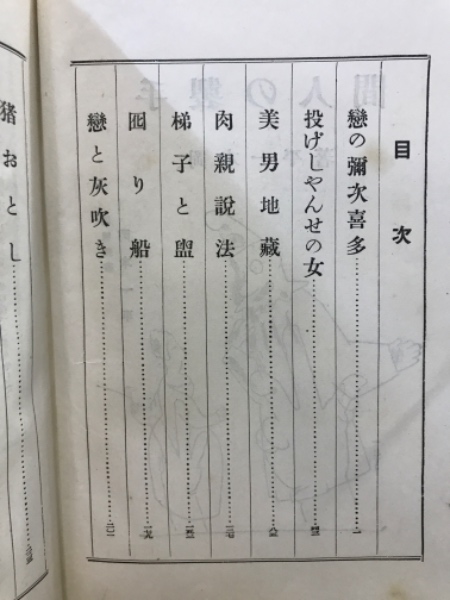 目次
戀の彌次喜多……一
投げしやんせの女
美男地藏
肉親説法
梯子と盥
囮り船
戀と灰吹き
猪おとし